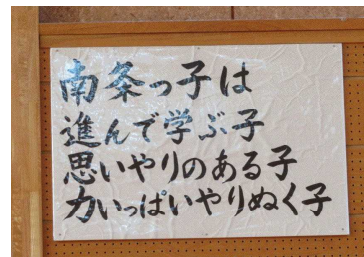 南条っ子は
進んで学ぶ子
思いやりのある子
力いっぱいやりぬく子